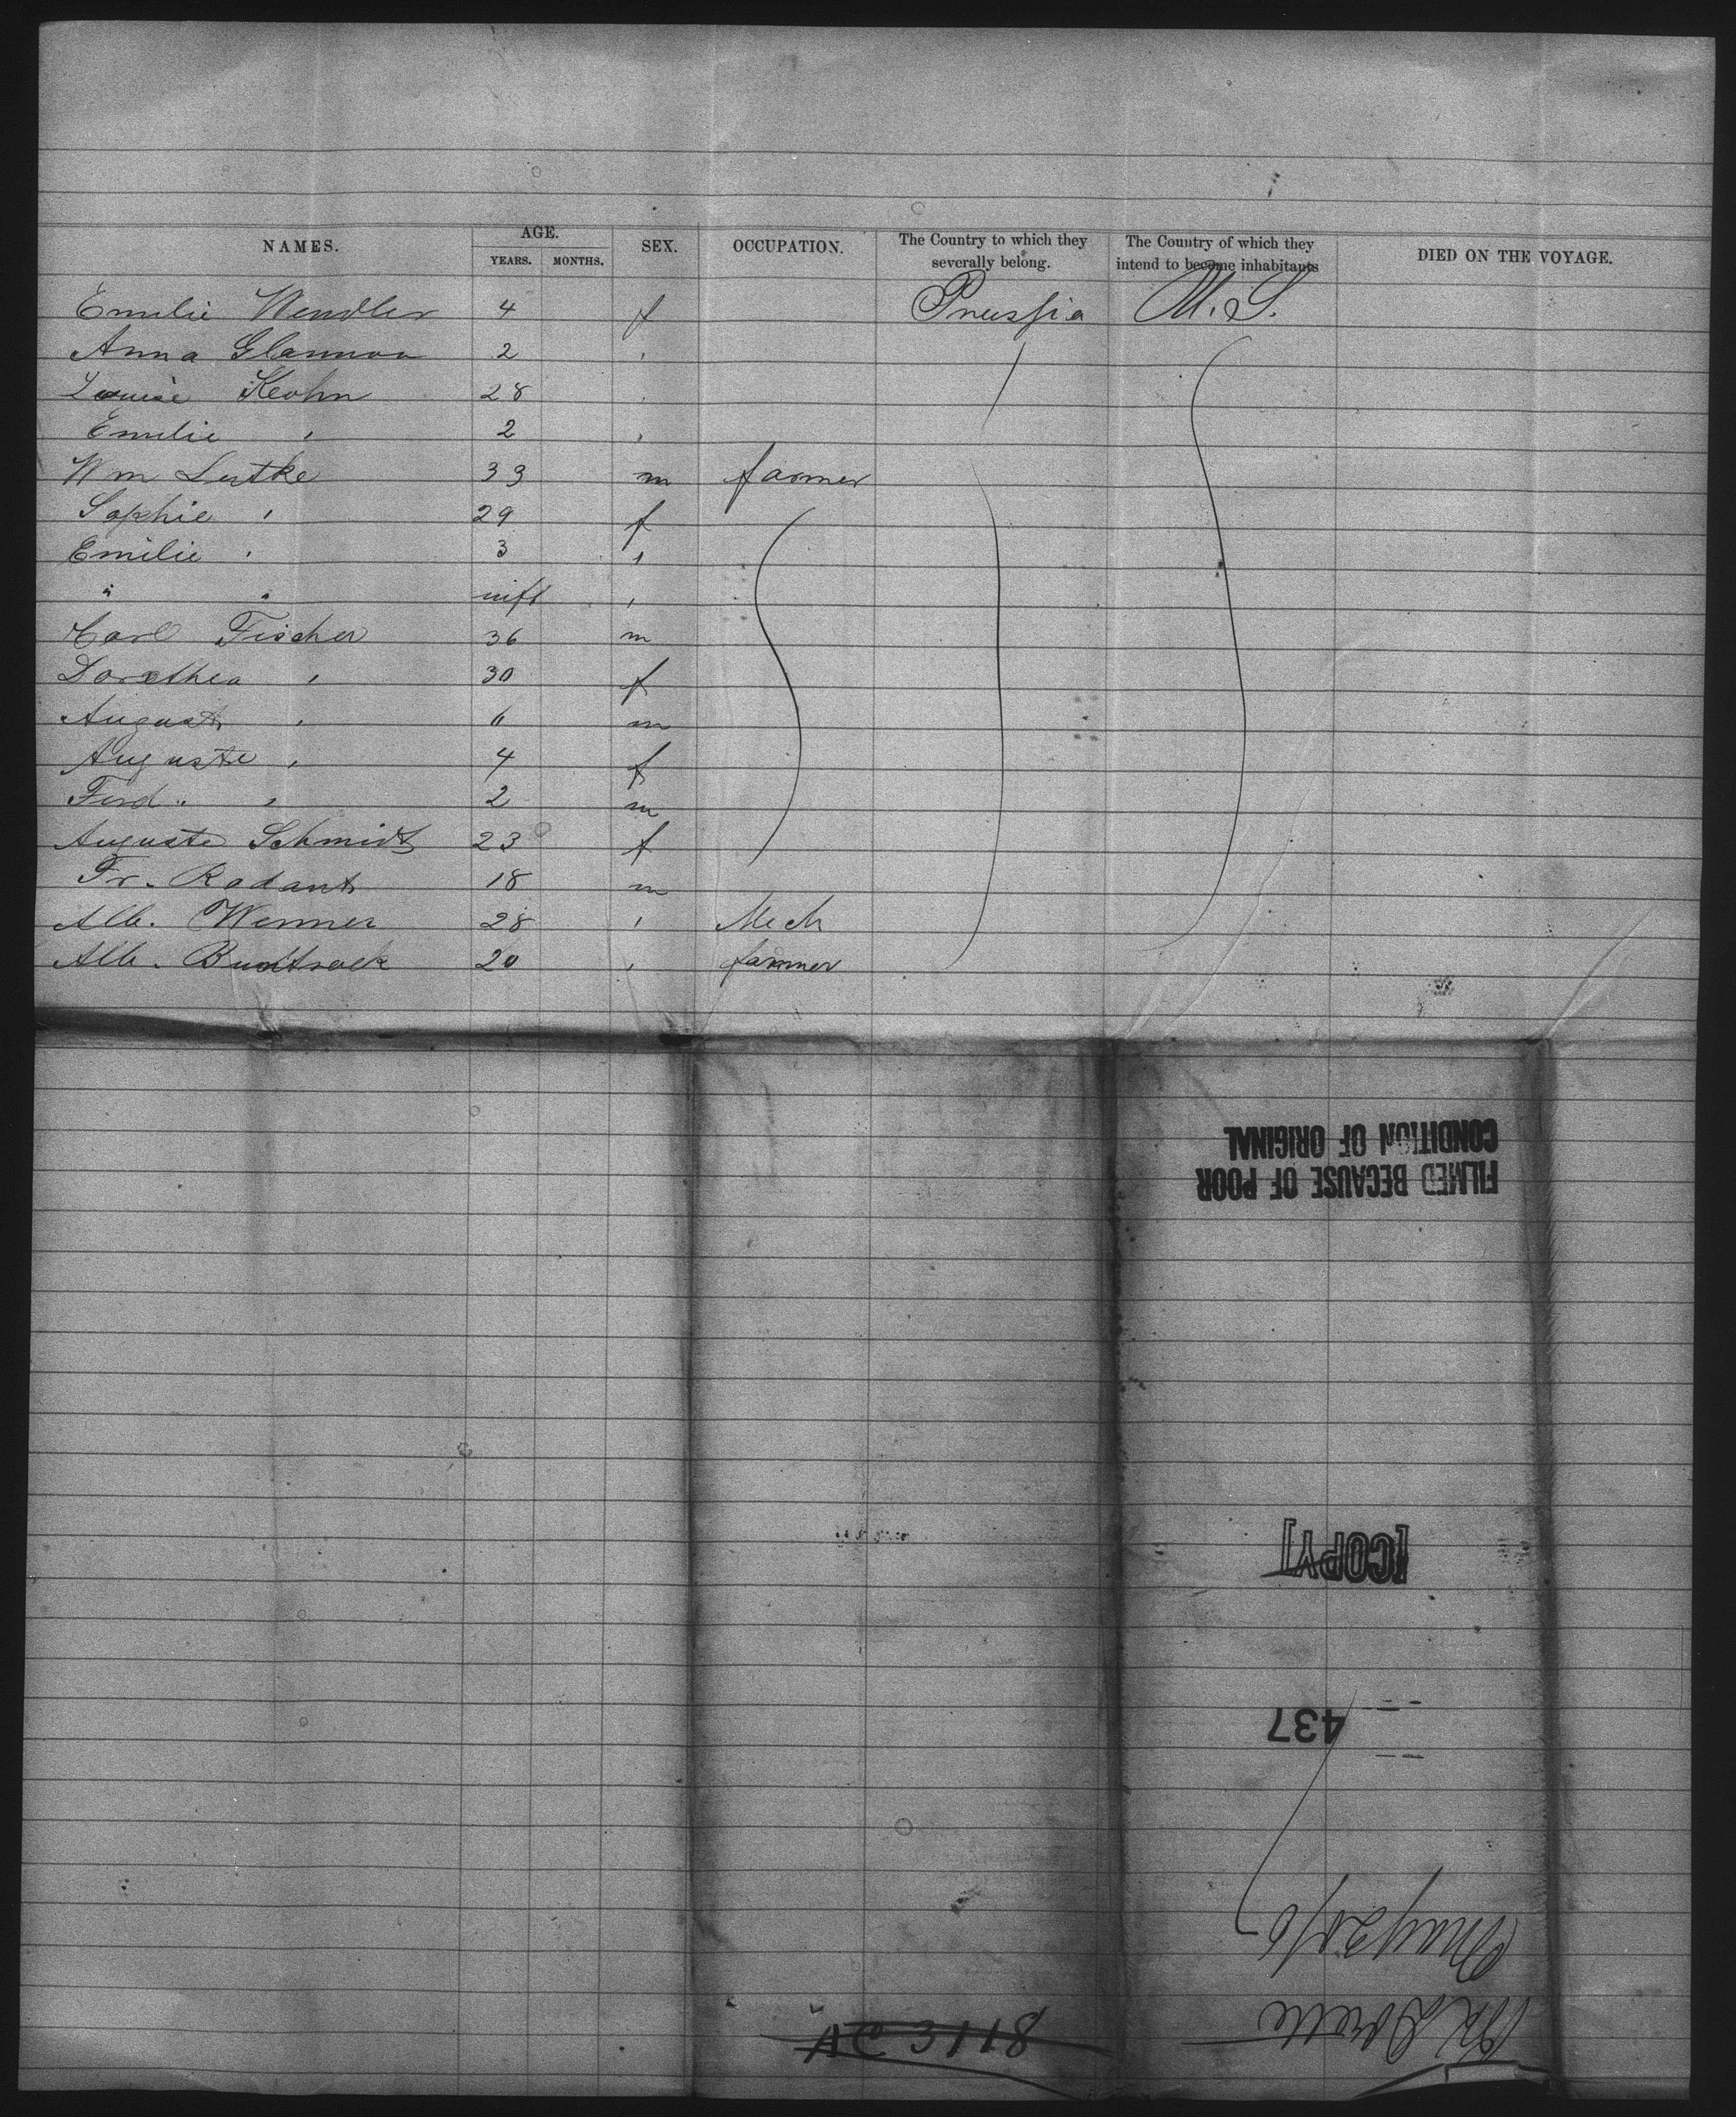 NAMES. AGE. YEARS. MONTHS. SEX. OCCUPATION. The Country to which they severally belong. The Country of which they intend to become inhabitants DIED ON THE VOYAGE.
Emilie Wendler 4 f Prussia U.S.
Anna Glannon 2 "
Louise Keohn 28 "
Emilie " 2 "
Wm Lutke 33 m farmer
Sophie " 29 f
Emilie " 3 "
" " inft "
Carl Fischer 36 m
Dorothea " 30 f
August " 6 m
Auguste " 4 f
Ferd. " 2 m
Auguste Schmidt 23 f
Fr. Radant 18 m
Alb. Wenner 28 " Mech
Alb. Buntrock 20 " farmer
FILMED BECAUSE OF POOR
CONDITION OF ORIGINAL
[COPY]
437
May
AC 3118